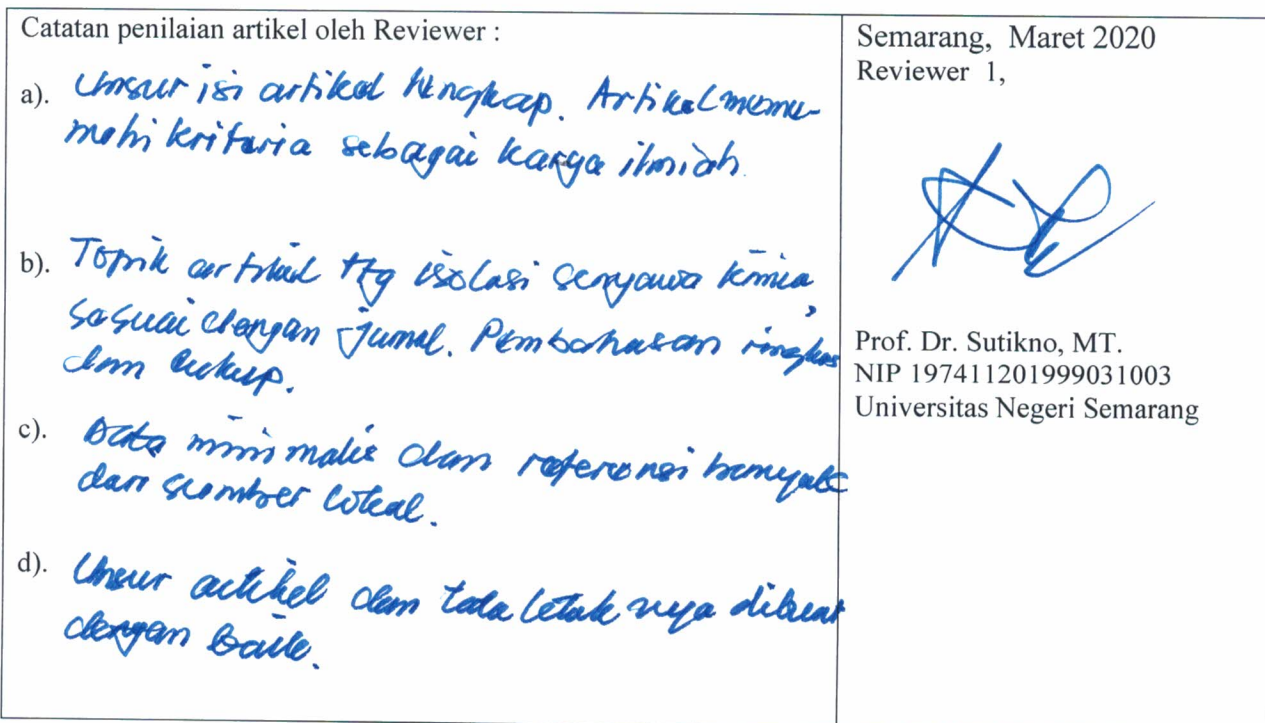 Catatan penilaian artikel oleh Reviewer :
a). Unsur isi artikel lengkap. Artikel meme-
nuhi kriteria sebagai karya ilmiah.
b). Topik artikel ttg isolasi senyawa kimia,
sesuai dengan jurnal. Pembahasan ringkas
dan cukup.
c). Data minimalis dan referensi banyak
dari sumber lokal.
d). Unsur artikel dan tata letaknya dibuat
dengan baik.
Semarang, Maret 2020
Reviewer 1,
Prof. Dr. Sutikno, MT.
NIP 197411201999031003
Universitas Negeri Semarang